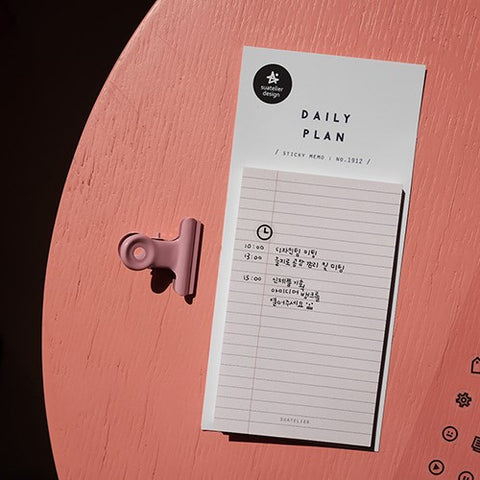 suatelier
design
DAILY
PLAN
/ STICKY MEMO | NO.1912 /
10:00 디자인팀 미팅
13:00 을지로 공장 감리 및 미팅
15:00 신제품 기획
아이디어 발표를
열어주세요
SUATELIER